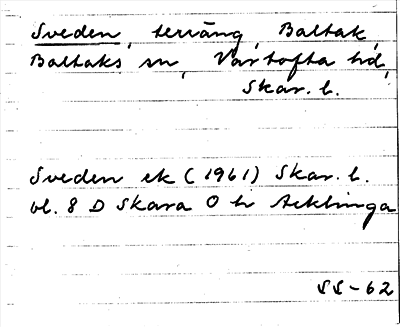 Sveden, terräng, Baltak,
Baltaks sn, Vartofta hd,
Skar. l.
Sveden ek (1961) Skar. l.
bl. 8 D Skara O h Acklinga
SS-62